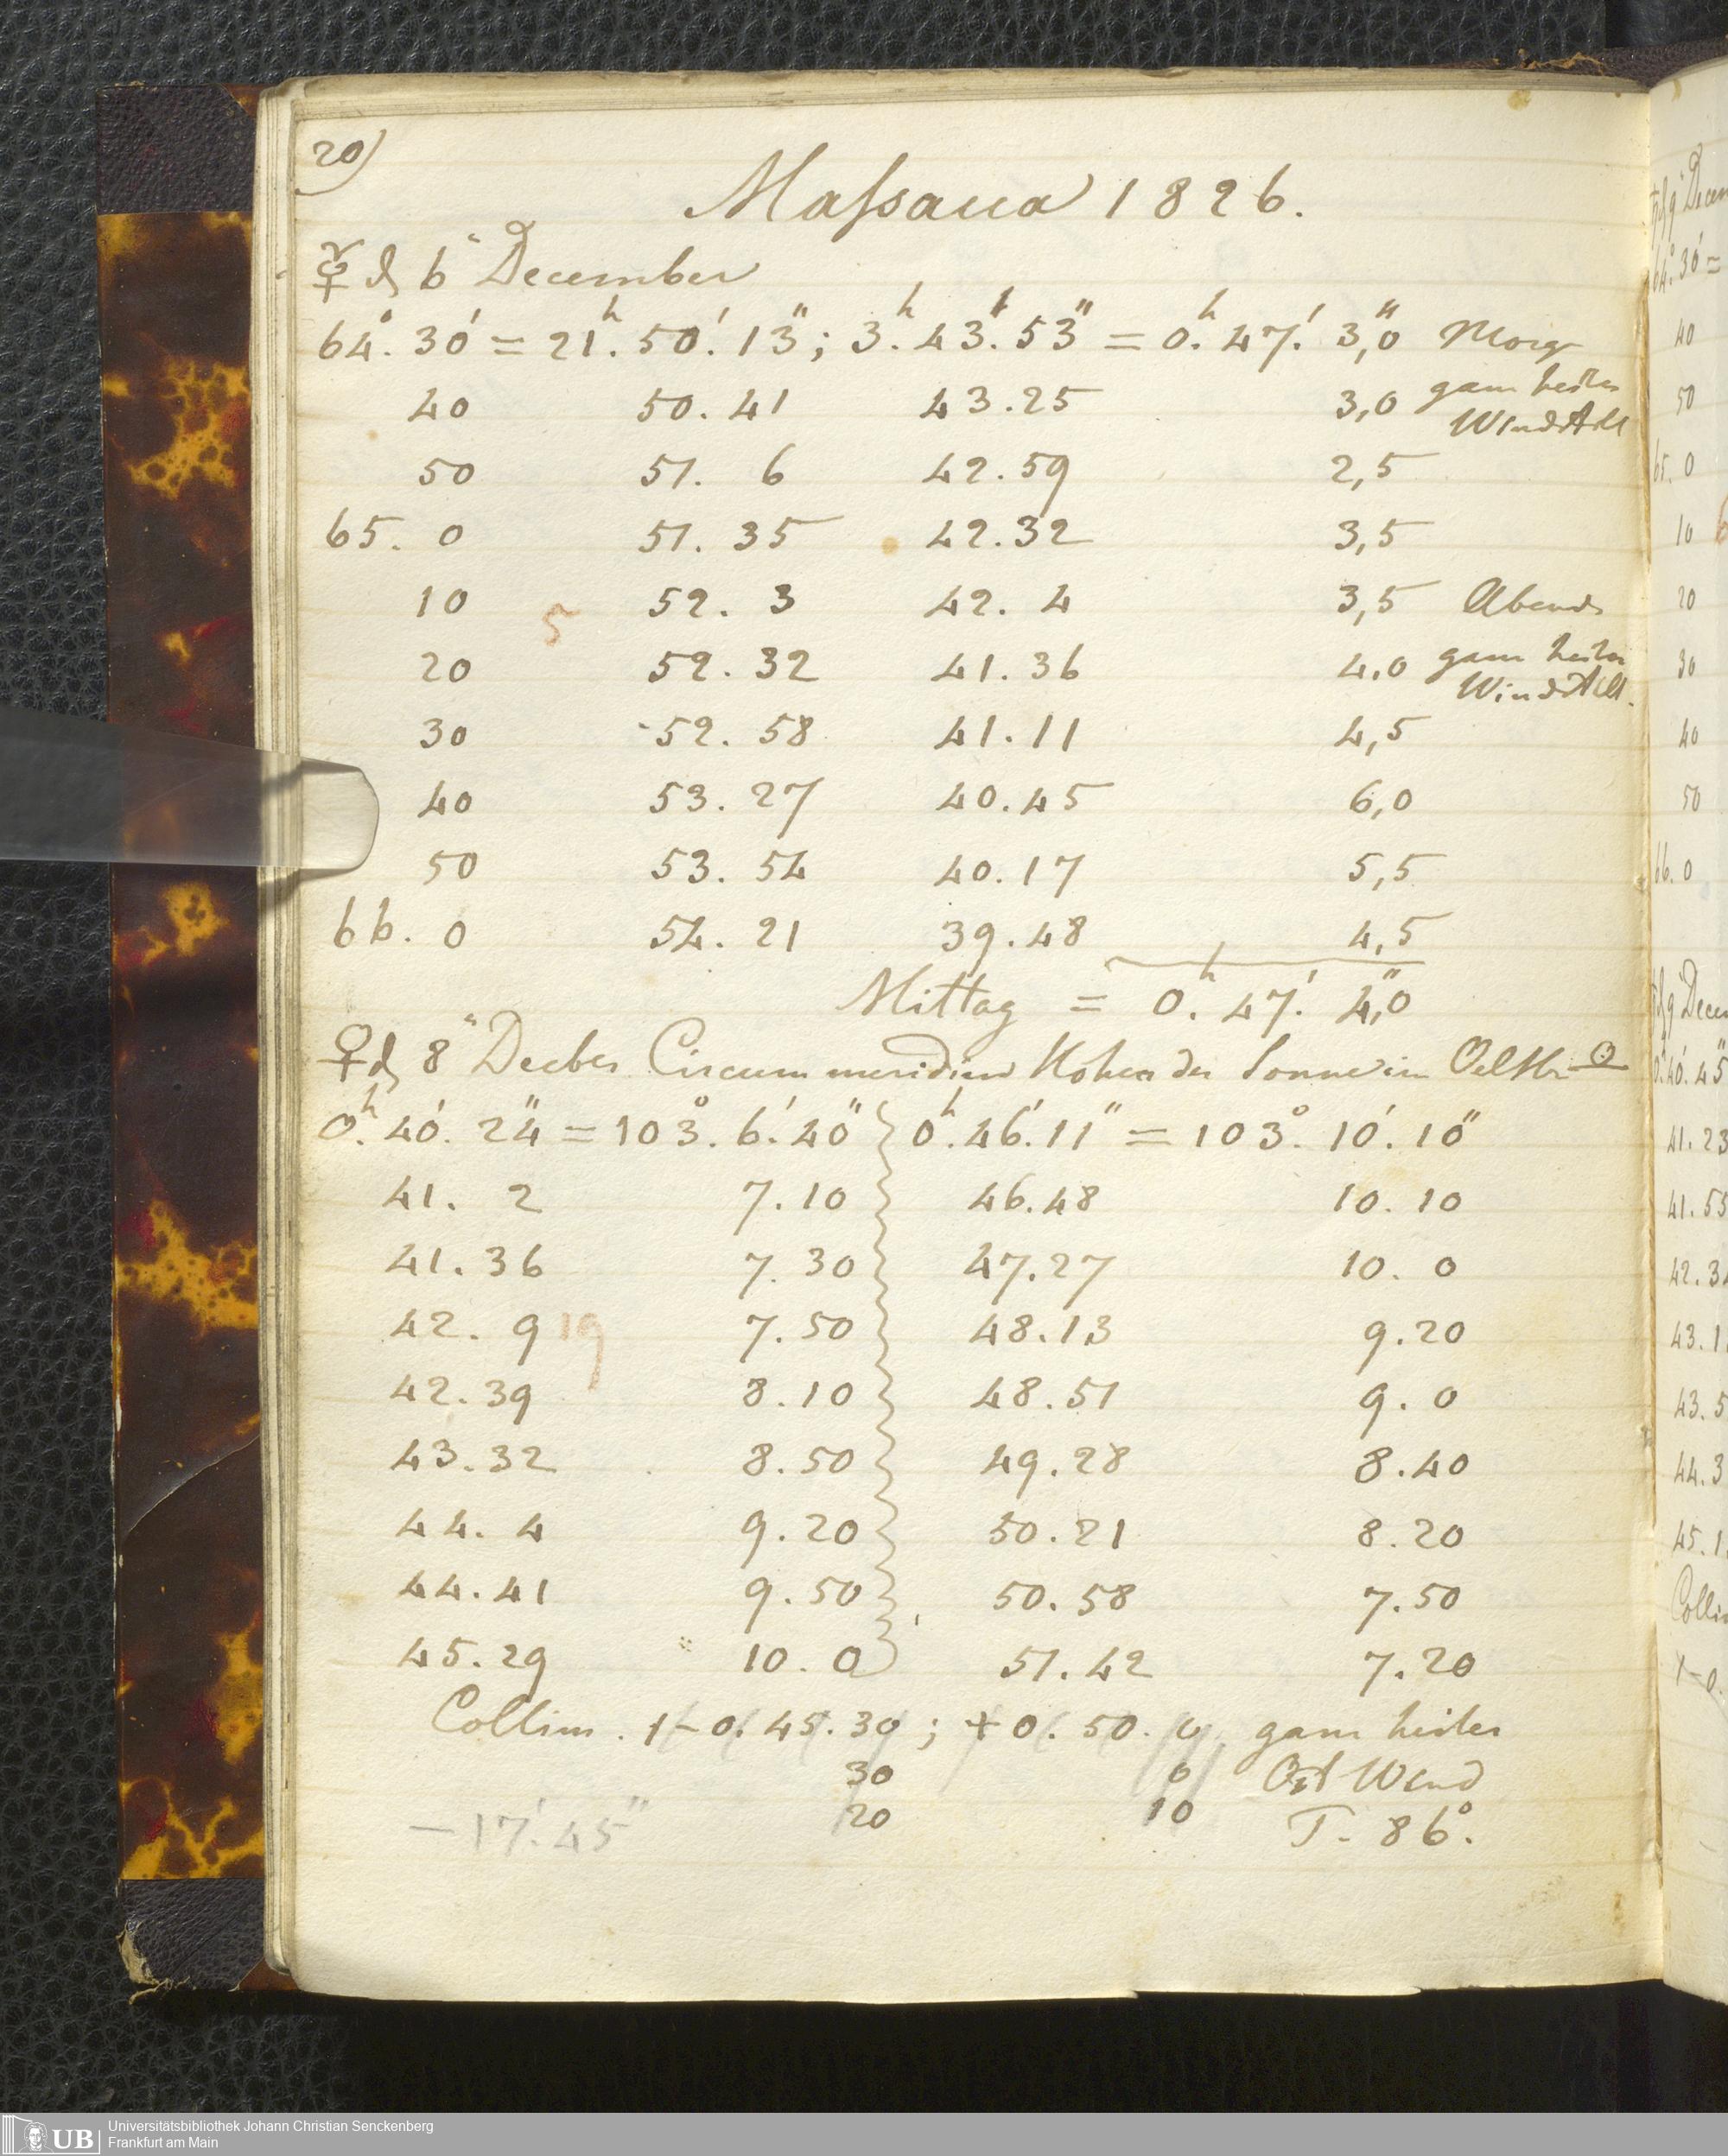 20)
Maſsaua 1826.
☿ d 6" December
64°. 30' = 21h. 50'. 13"; 3h. 43'. 53" = 0h. 47'. 3,"0 Morg
40 50. 41 43. 25 3,0 ganz heiter
Windstill
50 51. 6 42. 59 2,5
65. 0 51. 35 42. 32 3,5
10 5 52. 3 42. 4 3,5 Abends
20 52. 32 41. 36 4,0 ganz heiter
Windstill.
30 52. 58 41. 11 4,5
40 53. 27 40. 45 6,0
50 53. 54 40. 17 5,5
66. 0 54. 21 39. 48 4,5
Mittag = 0h. 47'. 4,"0
♀ d 8" Decber Circummeridian Höhen der Sonne im
0h. 40'. 24" = 103°. 6'. 40" 0h. 46'. 11" = 103°. 10'. 10"
41. 2 7. 10 46. 48 10. 10
41. 36 7. 30 47. 27 10. 0
42. 9 19 7. 50 48. 13 9. 20
42. 39 8. 10 48. 51 9. 0
43. 32 8. 50 49. 28 8. 40
44. 4 9. 20 50. 21 8. 20
44. 41 9. 50 50. 58 7. 50
45. 29 10. 0 51. 42 7. 20
Collim. - 0. 45. 30; + 0. 50. 0 ganz heiter
30 0 Ost Wind
- 17'. 45" 20 10 T. 86°.
UB
Universitätsbibliothek Johann Christian Senckenberg
Frankfurt am Main